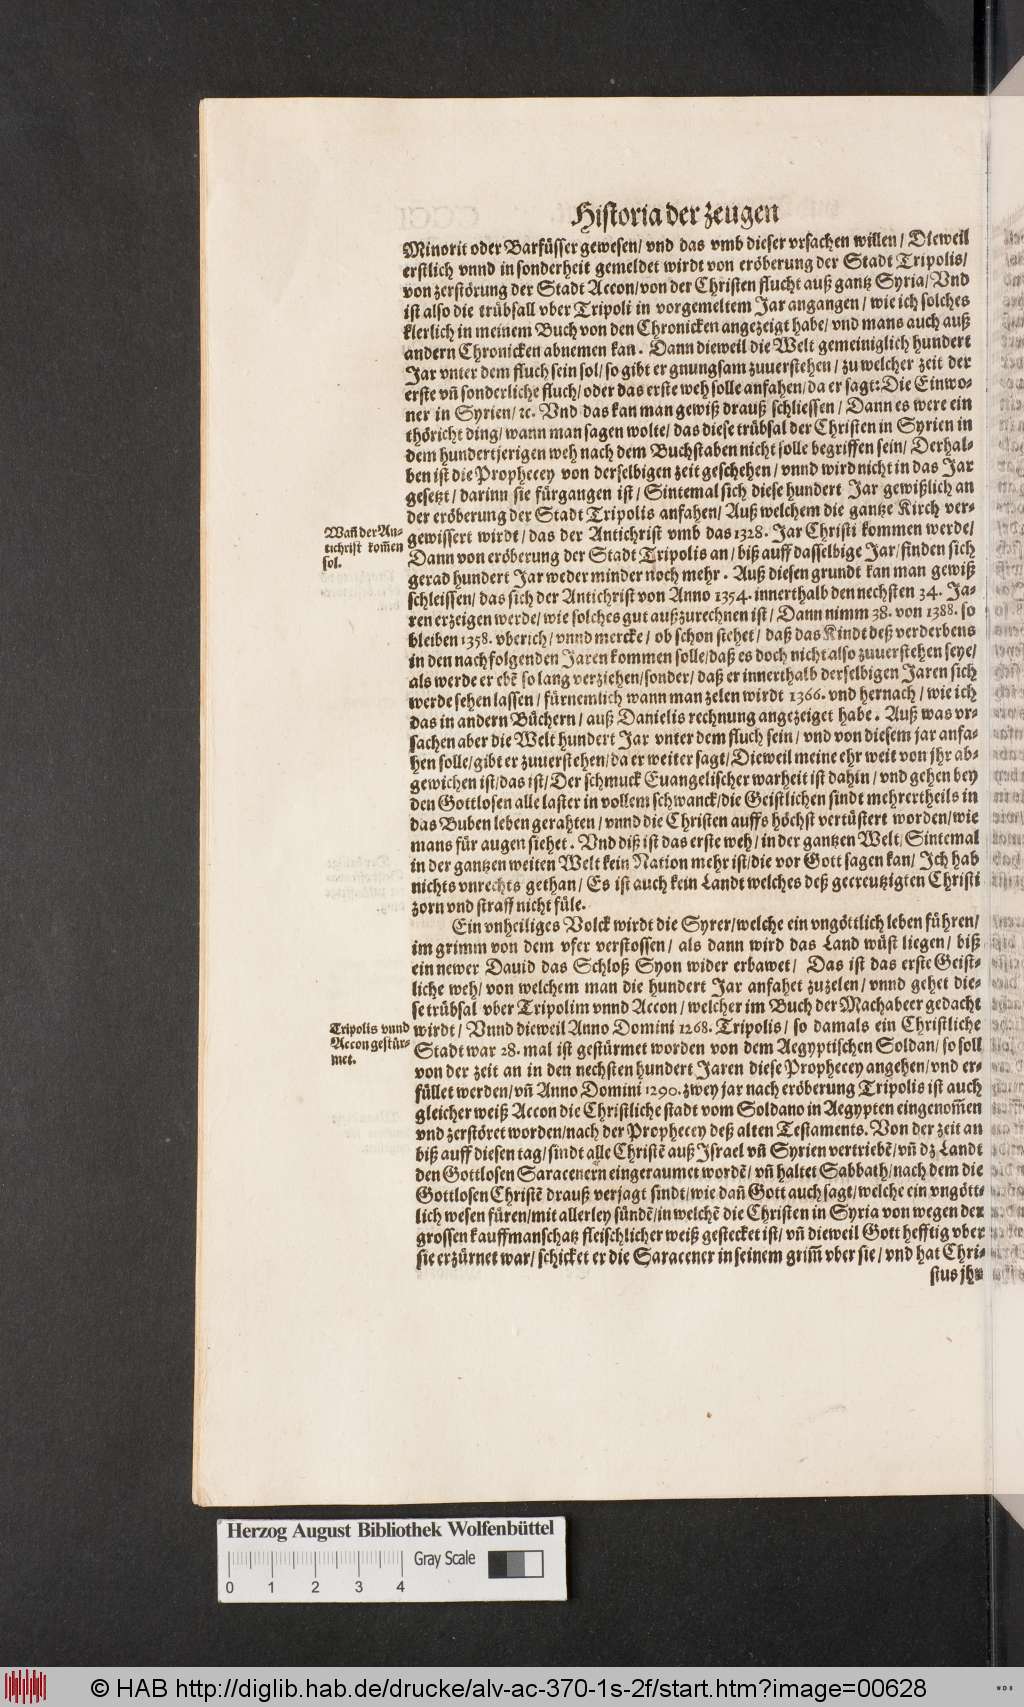 Historia der zeugen
Minorit oder Barfüsser gewesen/ vnd das vmb dieser vrsachen willen/ Dieweil
erstlich vnnd in sonderheit gemeldet wirdt von eröberung der Stadt Tripolis/
von zerstörung der Stadt Accon/ von der Christen flucht auß gantz Syria/ Vnd
ist also die trübsall vber Tripoli in vorgemeltem Jar angangen/ wie ich solches
klerlich in meinem Buch von den Chronicken angezeigt habe/ vnd mans auch auß
andern Chronicken abnemen kan. Dann dieweil die Welt gemeiniglich hundert
Jar vnter dem fluch sein sol/ so gibt er gnungsam zuuerstehen/ zu welcher zeit der
erste vñ sonderliche fluch/ oder das erste weh solle anfahen/ da er sagt: Die Einwo-
ner in Syrien/ ꝛc. Vnd das kan man gewiß drauß schliessen/ Dann es were ein
thöricht ding/ wann man sagen wolte/ das diese trübsal der Christen in Syrien in
dem hundertjerigen weh nach dem Buchstaben nicht solle begriffen sein/ Derhal-
ben ist die Prophecey von derselbigen zeit geschehen/ vnnd wird nicht in das Jar
gesetzt/ darinn sie fürgangen ist/ Sintemal sich diese hundert Jar gewißlich an
der eröberung der Stadt Tripolis anfahen/ Auß welchem die gantze Kirch ver-
Wañ der An-
tichrist kom̃en
sol.
gewissert wirdt/ das der Antichrist vmb das 1328. Jar Christi kommen werde/
Dann von eröberung der Stadt Tripolis an/ biß auff dasselbige Jar/ finden sich
gerad hundert Jar weder minder noch mehr. Auß diesen grundt kan man gewiß
schleissen/ das sich der Antichrist von Anno 1354. innerthalb den nechsten 34. Ja-
ren erzeigen werde/ wie solches gut außzurechnen ist/ Dann nimm 38. von 1388. so
bleiben 1358. vberich/ vnnd mercke/ ob schon stehet/ daß das Kindt deß verderbens
in den nachfolgenden Jaren kommen solle/ daß es doch nicht also zuuerstehen seye/
als werde er ebẽ so lang verziehen/ sonder/ daß er innerthalb derselbigen Jaren sich
werde sehen lassen/ fürnemlich wann man zelen wirdt 1366. vnd hernach/ wie ich
das in andern Büchern/ auß Danielis rechnung angezeiget habe. Auß was vr-
sachen aber die Welt hundert Jar vnter dem fluch sein/ vnd von diesem jar anfa-
hen solle/ gibt er zuuerstehen/ da er weiter sagt/ Dieweil meine ehr weit von jhr ab-
gewichen ist/ das ist/ Der schmuck Euangelischer warheit ist dahin/ vnd gehen bey
den Gottlosen alle laster in vollem schwanck/ die Geistlichen sindt mehrertheils in
das Buben leben gerahten/ vnnd die Christen auffs höchst vertüstert worden/ wie
mans für augen siehet. Vnd diß ist das erste weh/ in der gantzen Welt/ Sintemal
in der gantzen weiten Welt kein Nation mehr ist/ die vor Gott sagen kan/ Ich hab
nichts vnrechts gethan/ Es ist auch kein Landt welches deß gecreutzigten Christi
zorn vnd straff nicht füle.
Ein vnheiliges Volck wirdt die Syrer/ welche ein vngöttlich leben führen/
im grimm von dem vfer verstossen/ als dann wird das Land wüst liegen/ biß
ein newer Dauid das Schloß Syon wider erbawet/ Das ist das erste Geist-
liche weh/ von welchem man die hundert Jar anfahet zuzelen/ vnnd gehet die-
se trübsal vber Tripolim vnnd Accon/ welcher im Buch der Machabeer gedacht
Tripolis vnnd
Accon gestür-
met.
wirdt/ Vnnd dieweil Anno Domini 1268. Tripolis/ so damals ein Christliche
Stadt war 28. mal ist gestürmet worden von dem Aegyptischen Soldan/ so soll
von der zeit an in den nechsten hundert Jaren diese Prophecey angehen/ vnd er-
füllet werden/ vñ Anno Domini 1290. zwey jar nach eröberung Tripolis ist auch
gleicher weiß Accon die Christliche stadt vom Soldano in Aegypten eingenom̃en
vnd zerstöret worden/ nach der Prophecey deß alten Testaments. Von der zeit an
biß auff diesen tag/ sindt alle Christẽ auß Israel vñ Syrien vertriebẽ/ vñ dz Landt
den Gottlosen Saracenern eingeraumet wordẽ/ vñ haltet Sabbath/ nach dem die
Gottlosen Christẽ drauß verjagt sindt/ wie dañ Gott auch sagt/ welche ein vngött-
lich wesen füren/ mit allerley sündẽ/ in welchẽ die Christen in Syria von wegen der
grossen kauffmanschatz fleischlicher weiß gestecket ist/ vñ dieweil Gott hefftig vber
sie erzürnet war/ schicket er die Saracener in seinem grim̃ vber sie/ vnd hat Chri-
stus jhr
Herzog August Bibliothek Wolfenbüttel
Gray Scale
0 1 2 3 4
© HAB http://diglib.hab.de/drucke/alv-ac-370-1s-2f/start.htm?image=00628